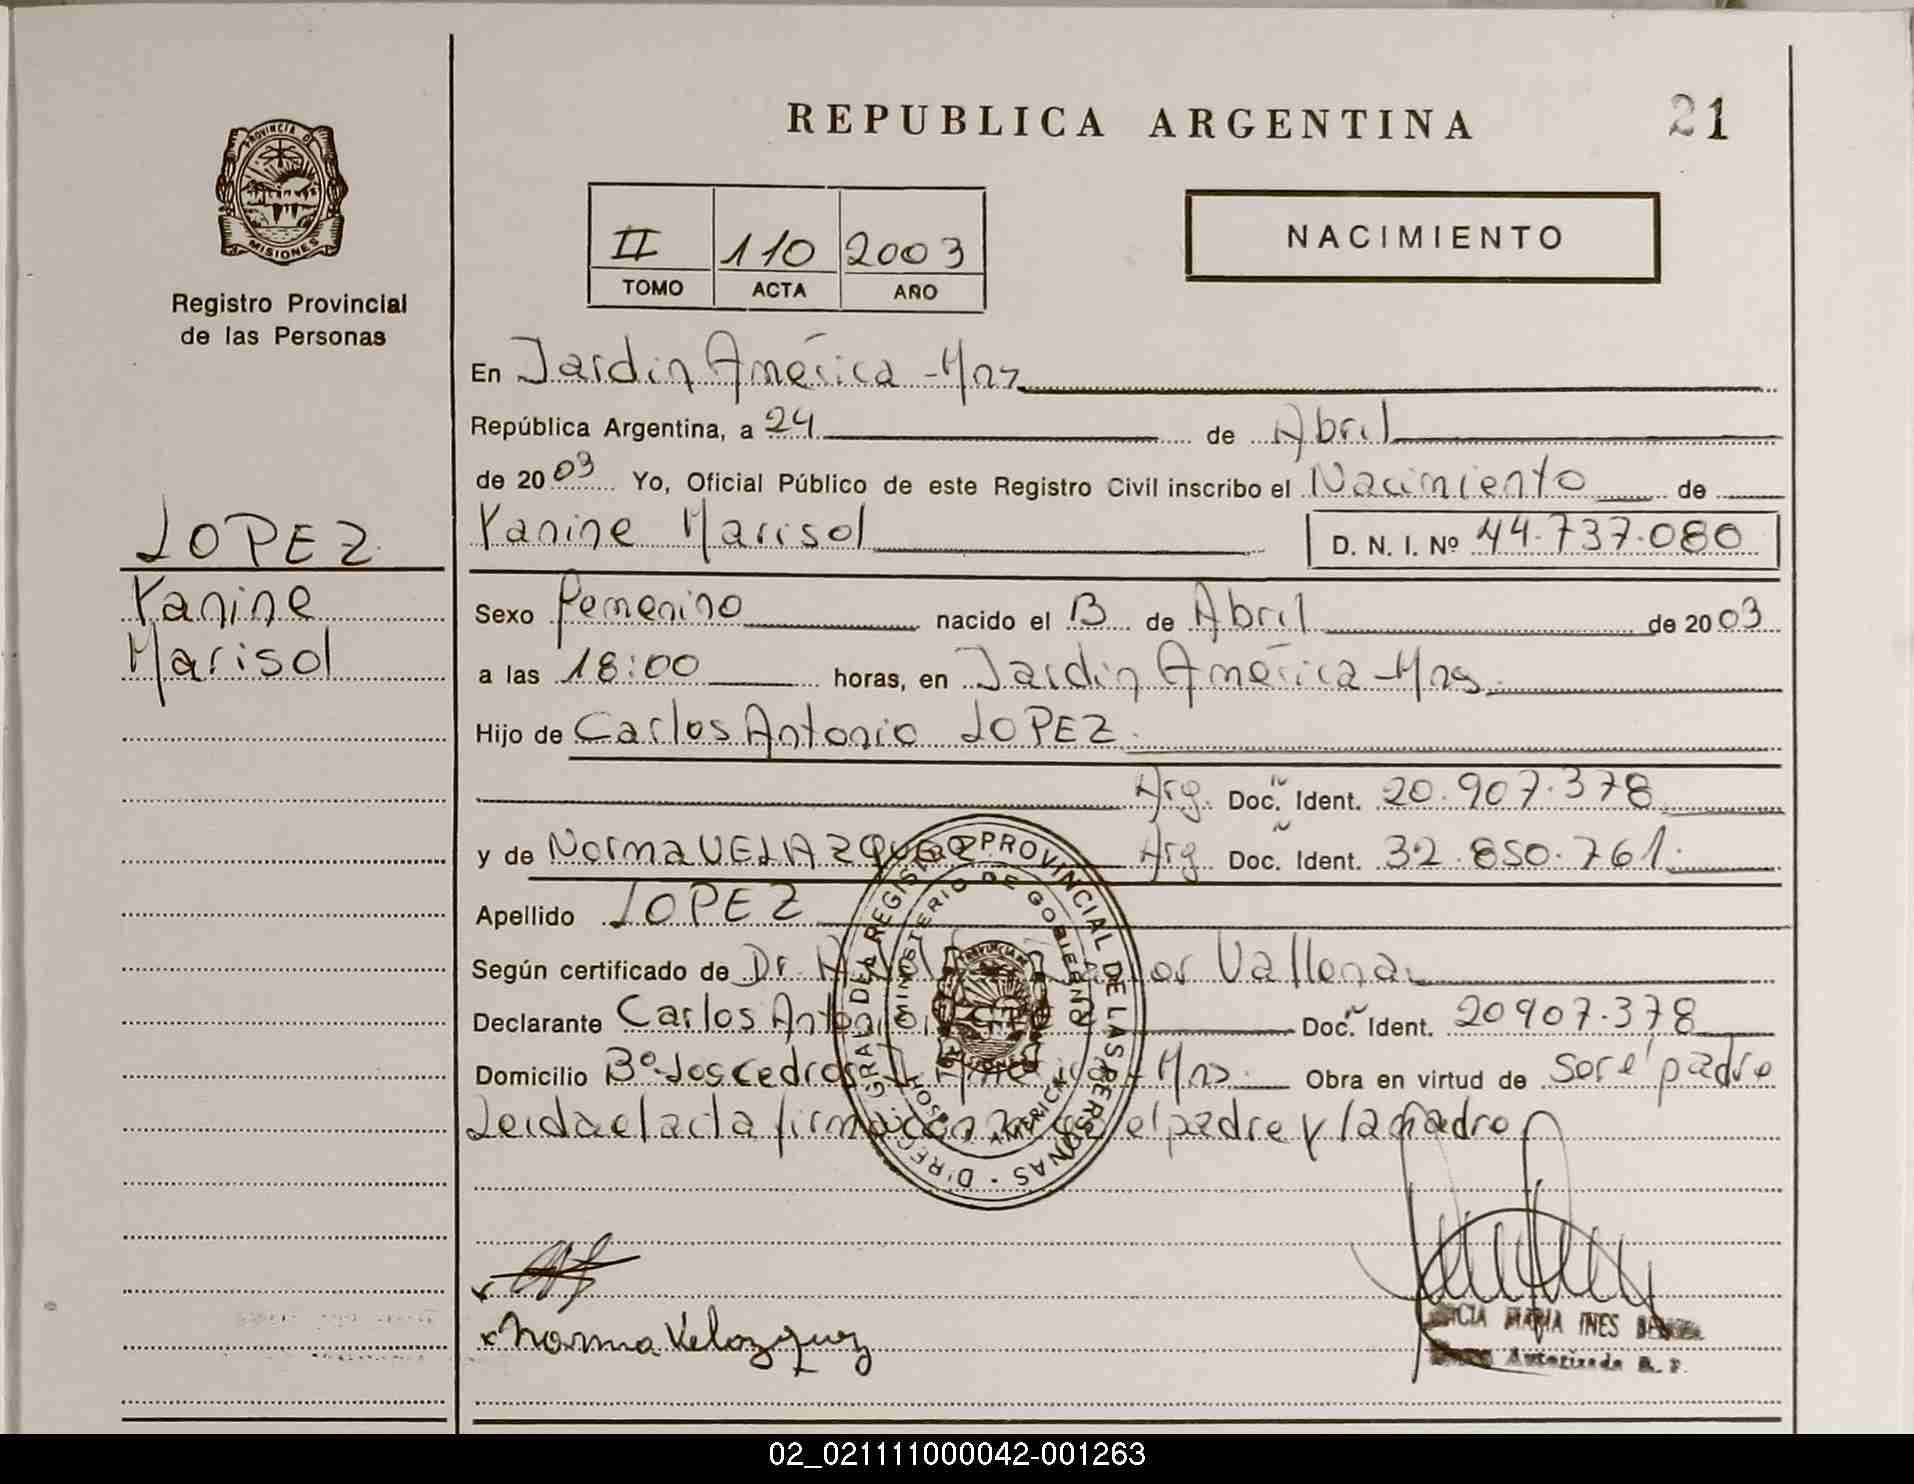 REPUBLICA ARGENTINA
21
PROVINCIA DE
MISIONES
Registro Provincial
de las Personas
II 110 2003
TOMO ACTA AÑO
NACIMIENTO
LOPEZ
Yanine
Marisol
En Jardin América - Mns
República Argentina, a 24 de Abril
de 2003 Yo, Oficial Público de este Registro Civil inscribo el Nacimiento de
Yanine Marisol D. N. I. Nº 44.737.080
Sexo Femenino nacido el 13 de Abril de 2003
a las 18:00 horas, en Jardin América - Mns
Hijo de Carlos Antonio LOPEZ
Arg. Doc. Ident. 20.907.378
y de Norma VELAZQUEZ Arg. Doc. Ident. 32.850.761
Apellido LOPEZ
Según certificado de Dr. Vallena
Declarante Carlos Antonio Doc. Ident. 20907.378
Domicilio Bº Los Cedros Mns. Obra en virtud de ser el padre
Leida el acta firman el padre y la madre
DIREC. GRAL DEL REGISTRO PROVINCIAL DE LAS PERSONAS
MINISTERIO DE GOBIERNO
AMERICA
Norma Velazquez
MARIA INES
Autorizada R. P.
02_021111000042-001263